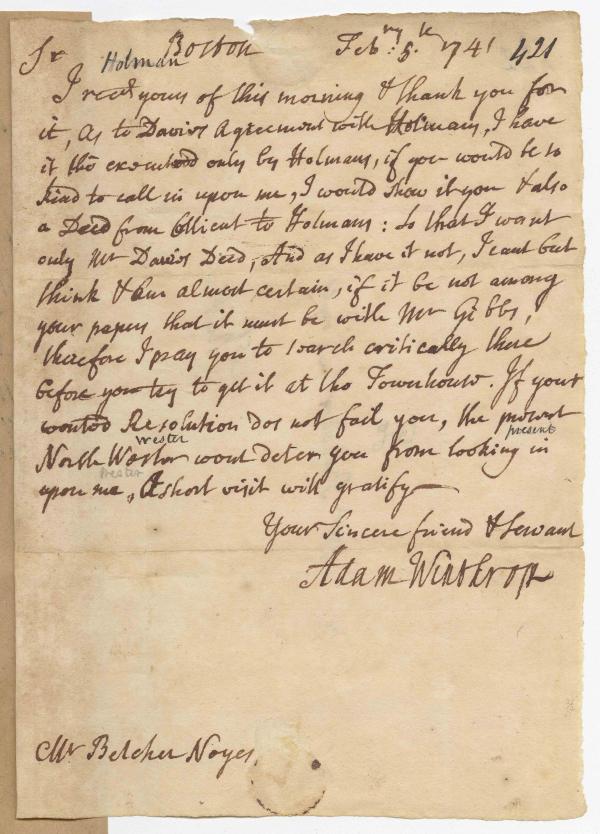 Sr Boston Feb:ry 5.th 1741 421
Holman
I recd yours of this morning & thank you for
it, as to Davies Agreement with Holmans, I have
it tho executed only by Holmans, if you would be so
kind to call in upon me, I would show it you & also
a Deed from Ollicut to Holmans: so that I want
only Mr Davies Deed, And as I have it not, I cant but
think & am almost certain, if it be not among
your papers that it must be with Mr Gibbs,
therefore I pray you to search critically there
before you try to get it at the Townhouse. If your
wonted Resolution dos not fail you, the present
wester present
North Wester wont deter you from looking in
wester
upon me, A short visit will gratify
Your Sincere friend & Servant
Adam Winthrop
Mr Belcher Noyes.